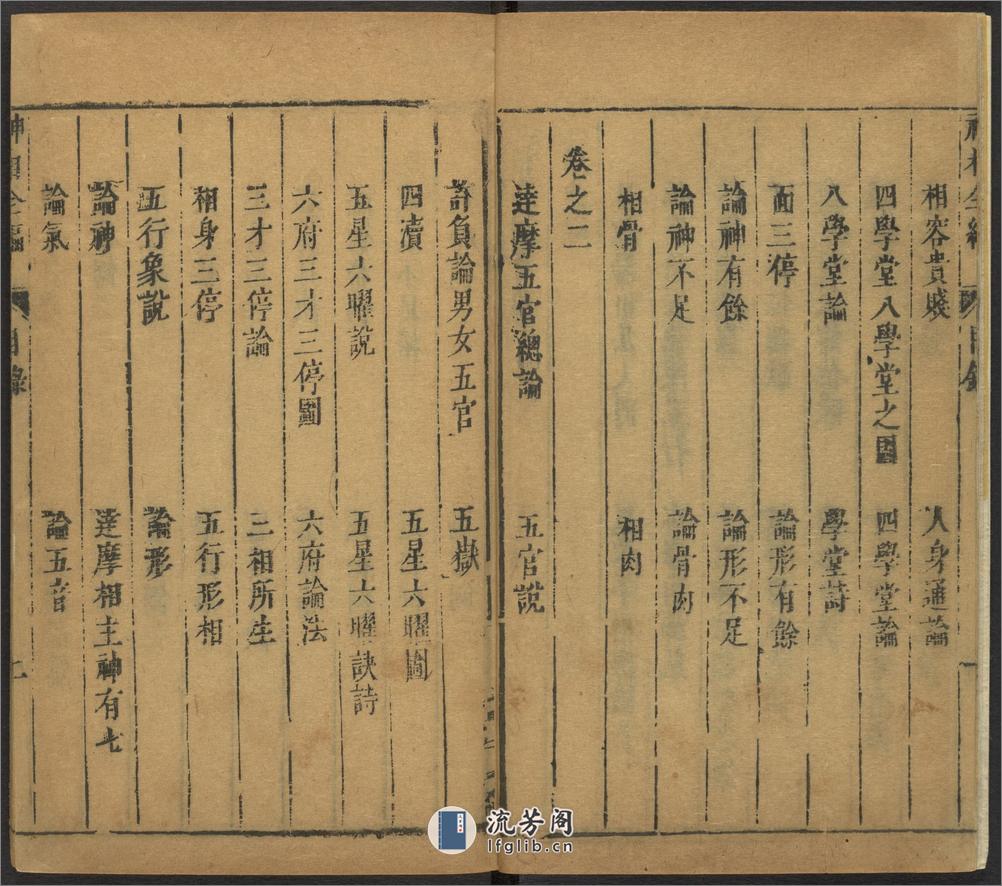 相容貴賤　人身通論
四學堂八學堂之圖　四學堂論
八學堂論　學堂詩
面三停　論形有餘
論神有餘　論形不足
論神不足　論骨肉
相骨　相肉
卷之二
達摩五官總論　五官說
許負論男女五官　五嶽
四瀆　五星六曜圖
五星六曜說　五星六曜訣詩
六府三才三停圖　六府論法
三才三停論　三相所生
相身三停　五行形相
五行象說　論形
論神　達摩相主神有七
論氣　論五音
神相全編　目錄
流芳阁
lfglib.cn